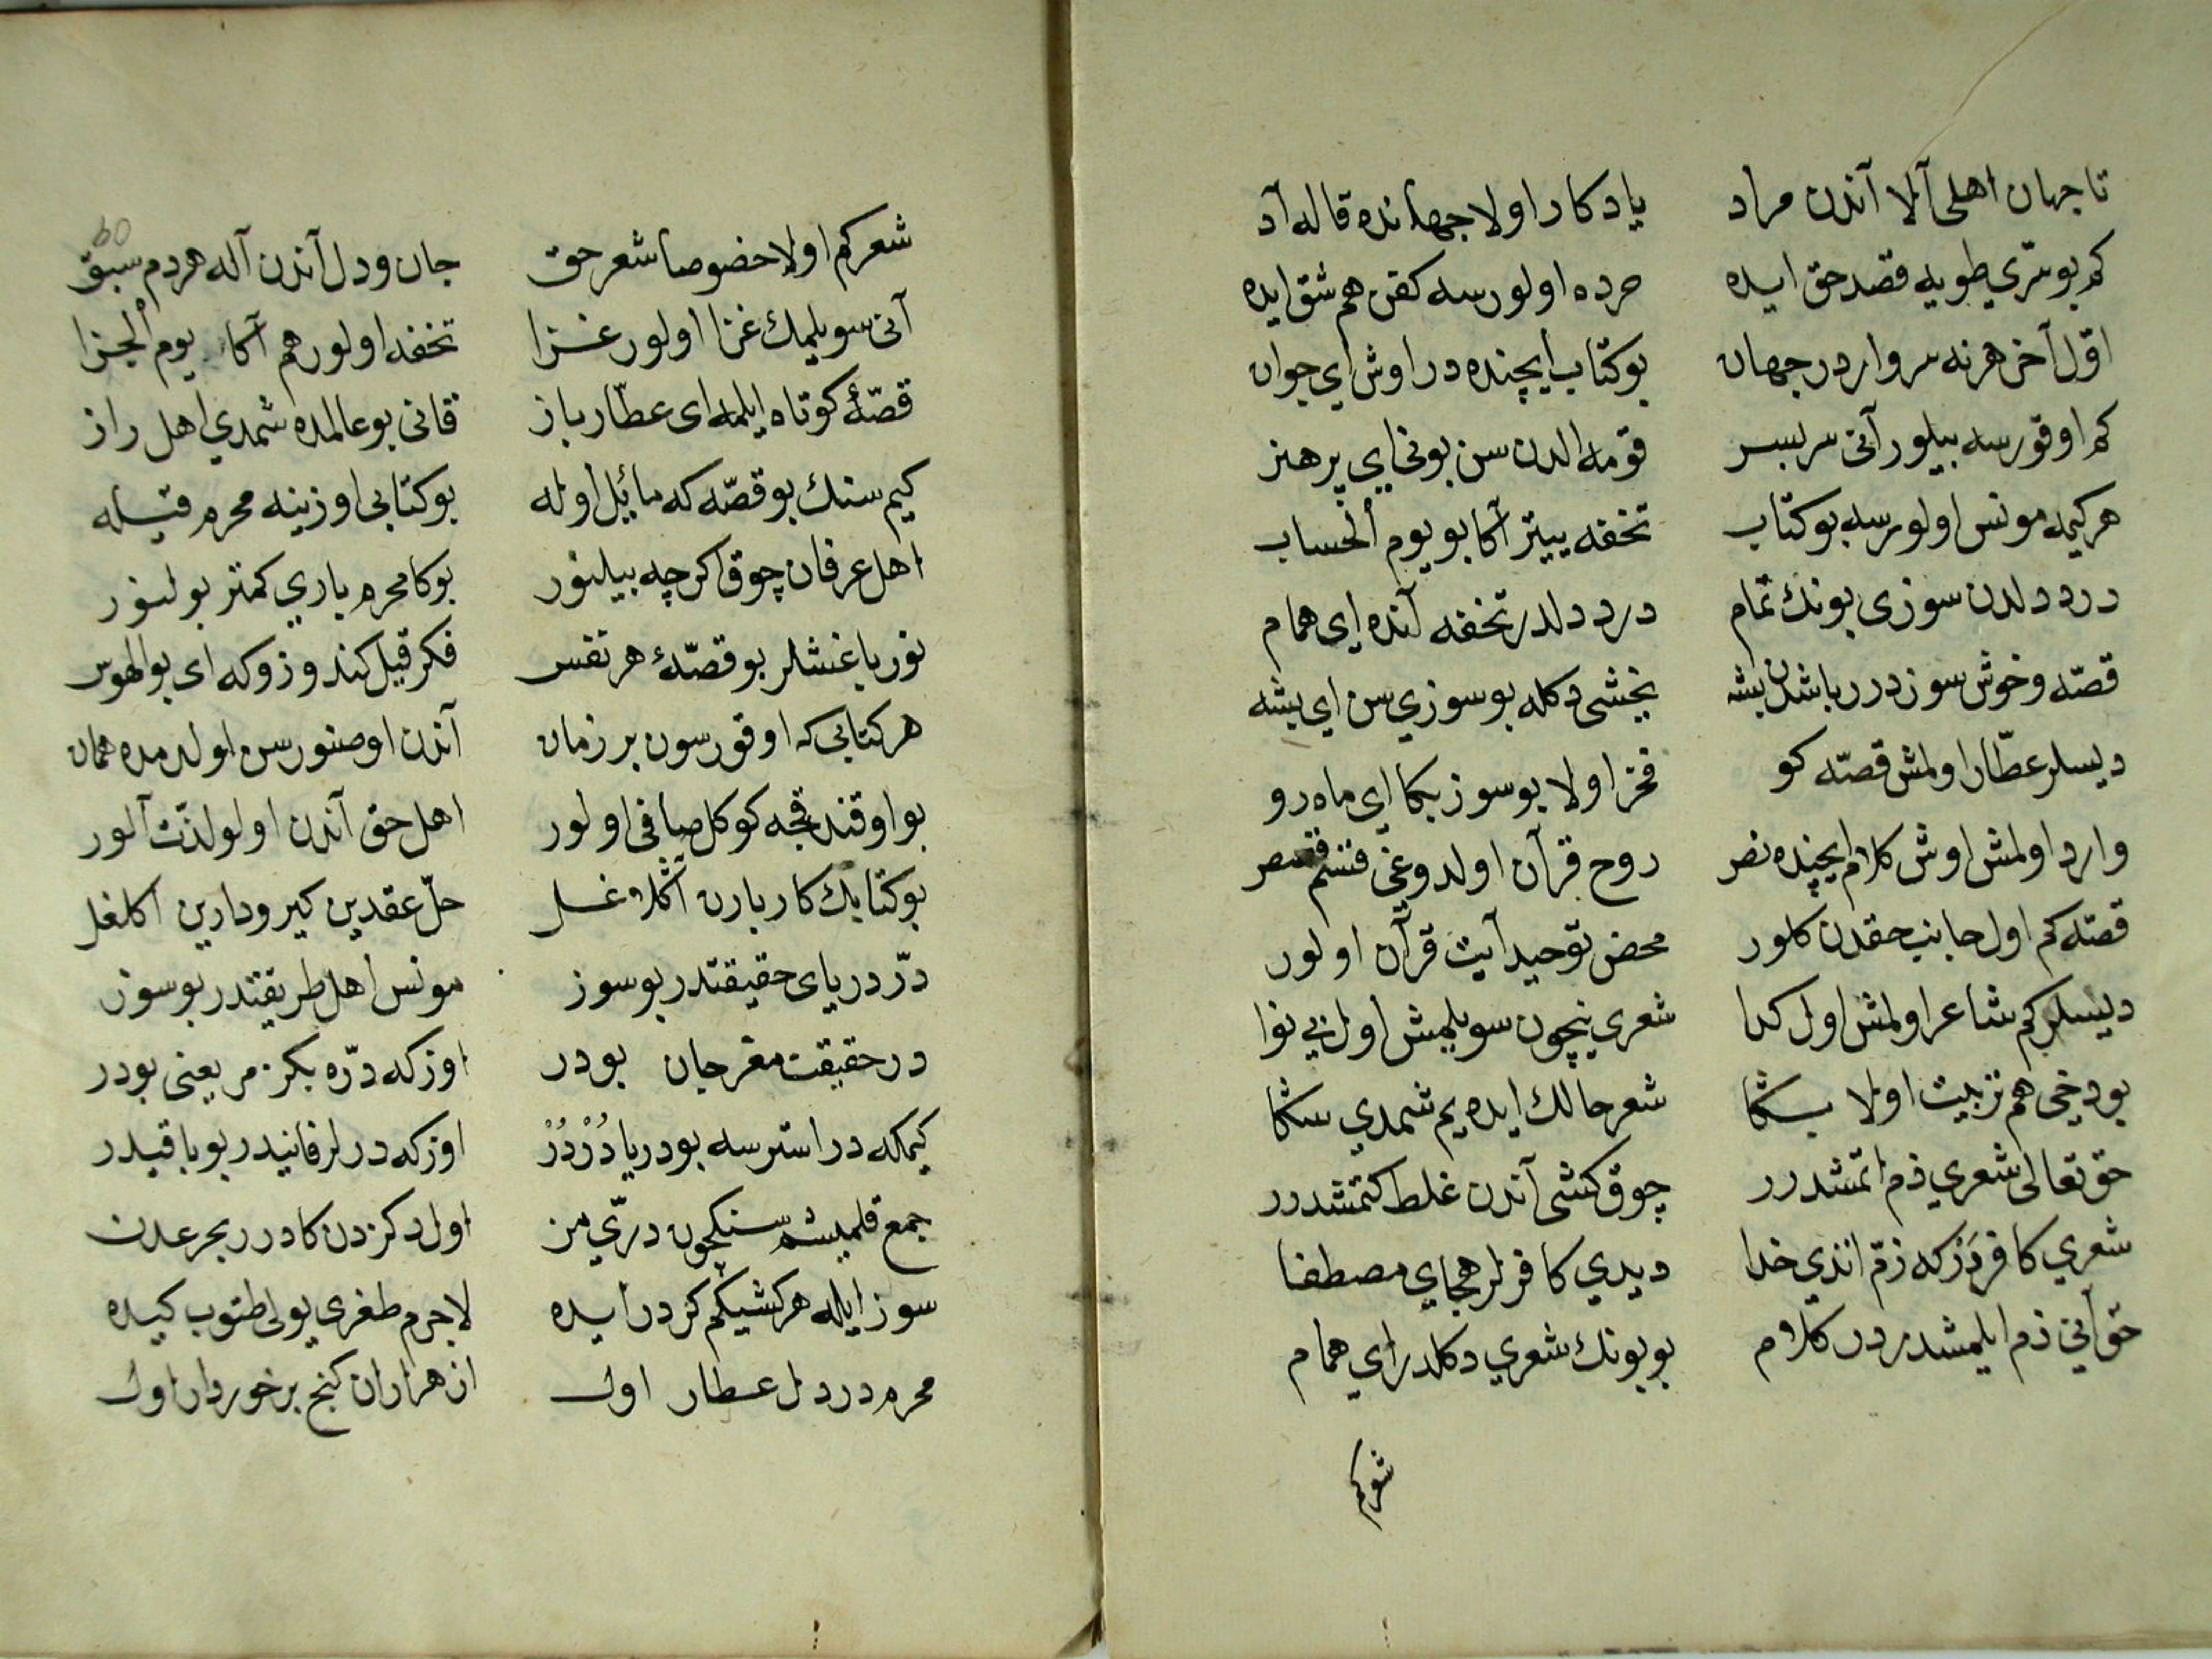 تا جهان اهلی آلا آندن مراد یادکار اولا جهانده قاله آد
کم بو سرّی طویه قصد حق ایده مرده اولورسه کفن هم شق ایده
اوّل آخر هر نه سر وار در جهان بو کتاب ایچنده در اوش ای جوان
کم اوقورسه بیلور آنی سربسر قومه الدن سن بونی ای پر هنر
هر کیمه مونس اولورسه بو کتاب تحفه ییتر آکا بو یوم ألحساب
درد دلدن سوزی بونک تمام درد دلدر تحفه آنده ای همام
قصّه و خوش سوز درر باشدن بشه یخشی دکله بو سوزی سن ای بشه
دیسلر عطّار اولمش قصّه کو فخر اولا بو سوز بکا ای ماه رو
وارد اولمش اوش کلام ایچنده نصر روح قرآن اولدوغی قصص
قصّه کم اول جانب حقدن کلور محض توحید آیت قرآن اولور
دیسلر کم شاعر اولمش اول کدا شعری نیچون سویلمش اول بی نوا
بو دخی هم تربیت اولا بکا شعر حالک ایده یم شمدی سکا
حق تعالی شعری ذم اتمشدرر چوق کشی آندن غلط کتمشدرر
شعری کافر دزکه زمّ اندی خدا دیدی کافرلر هجای مصطفا
حق آنی ذم ایلمشدر در کلام بو بونک شعری دکلدر ای همام
شعر کم
شعر کم اولا خصوصا شعر حق جان و دل آندن آله هر دم سبق
آنی سویلیمک غزا اولور غزا تحفه اولور هم آکا یوم ألجزا
قصّۀ کوتاه ایلمه ای عطّار باز قانی بو عالمده شمدی اهل راز
کیم سنک بو قصّه که مائل اوله بو کتابی اوزینه محرم قیله
اهل عرفان چوق اکرچه بیلنور بوکا محرم یاری کمتر بولنور
نور باغشلر بو قصّۀ هر نفس فکر قیل کندوزوکه ای بو الهوس
هر کتابی که اوقورسون بر زمان آندن اوصنورسن اولدمده همان
بو اوقندقجه کوکل صافی اولور اهل حق آندن اولو لذّت آلور
بو کتابک کاربارن آکلاغل حلّ عقدین کیر و دارین آکلغل
درّ دریای حقیقتدر بو سوز مونس اهل طریقتدر بو سوز
در حقیقت مغز جان بودر اوزکه درّه بکزمز یعنی بودر
کیمکه در استرسه بو دریا دُرْدُرْ اوزکه درلر فانیدر بو باقیدر
جمع قلمیشم سنکچون درّی من اول دکزدن کادرر بحر عدن
سوز ایله هر کشیکم کزدر ایده لاجرم طغری یولی طتوب کیده
محرم درد دل عطار اول از هزاران کنج برخوردار اول